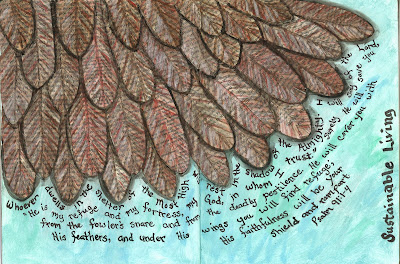 Whoever dwells in the shelter of the Most High rest in the shadow of the Almighty. I will say of the Lord,
"He is my refuge and my fortress, my God, in whom I trust." Surely He will save you
from the fowler's snare and from the deadly pestilence. He will cover you with
His feathers, and under His wings you will find refuge;
His faithfulness will be your
shield and rampart
Psalm 91:1-4
Sustainable Living